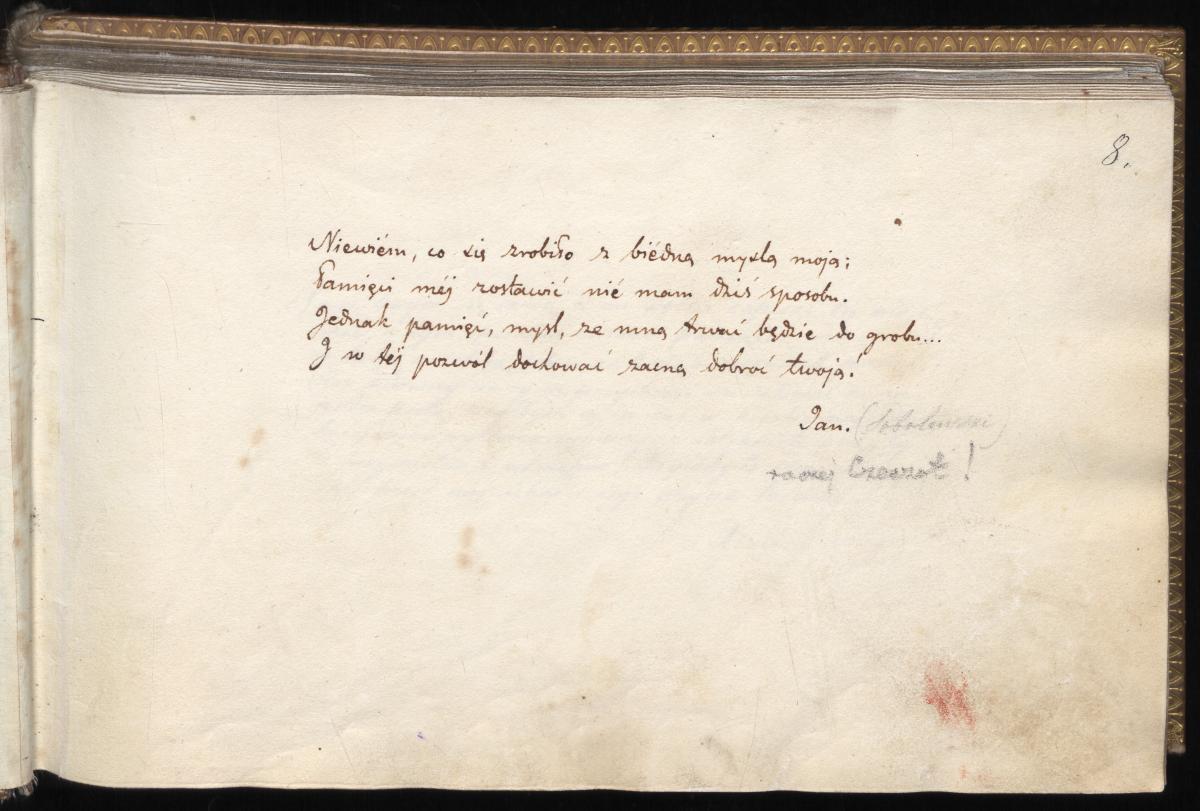 8.
Niewiém, co się zrobiło z biédną myslą moją;
Pamięci méj zostawić nié mam dziś sposobu.
Jednak pamięć, mysl, ze mną trwać będzie do grobu...
I w téj pozwól dochować zacną dobroć twoją!
Jan. (Sobolewski)
raczej Czeczot!